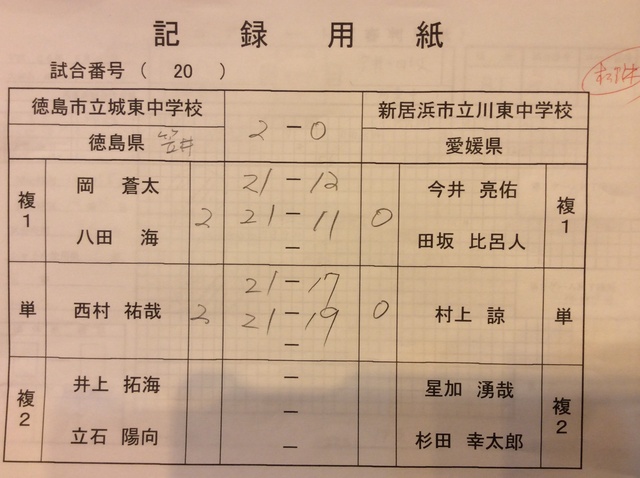 記録用紙
試合番号 ( 20 )
徳島市立城東中学校 2-0 新居浜市立川東中学校
徳島県 笠井 愛媛県
複1 岡 蒼太 2 21-12 0 今井 亮佑 複1
八田 海 21-11 田坂 比呂人
-
単 西村 祐哉 2 21-17 0 村上 諒 単
21-19
-
複2 井上 拓海 - 星加 湧哉 複2
-
立石 陽向 - 杉田 幸太郎